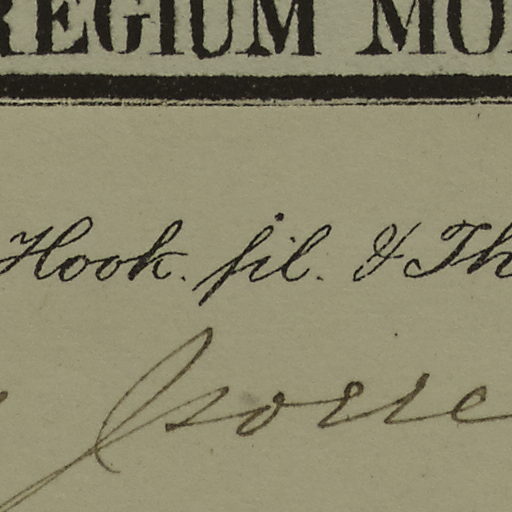 REGIUM MO
Hook. fil. & Th